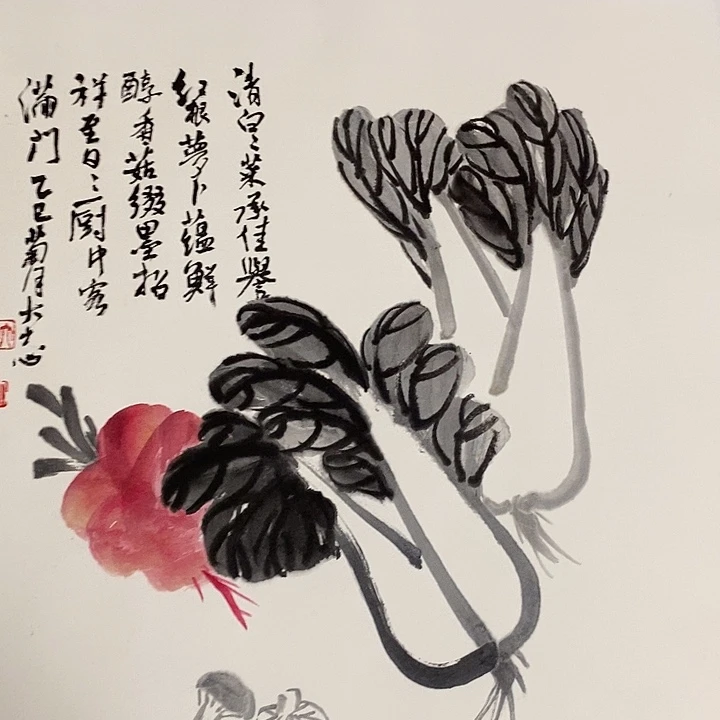 清白々菜承佳譽
红根萝卜蕴鲜
醇香菇缀墨招
祥至日々厨中客
满门 乙巳菊月大心